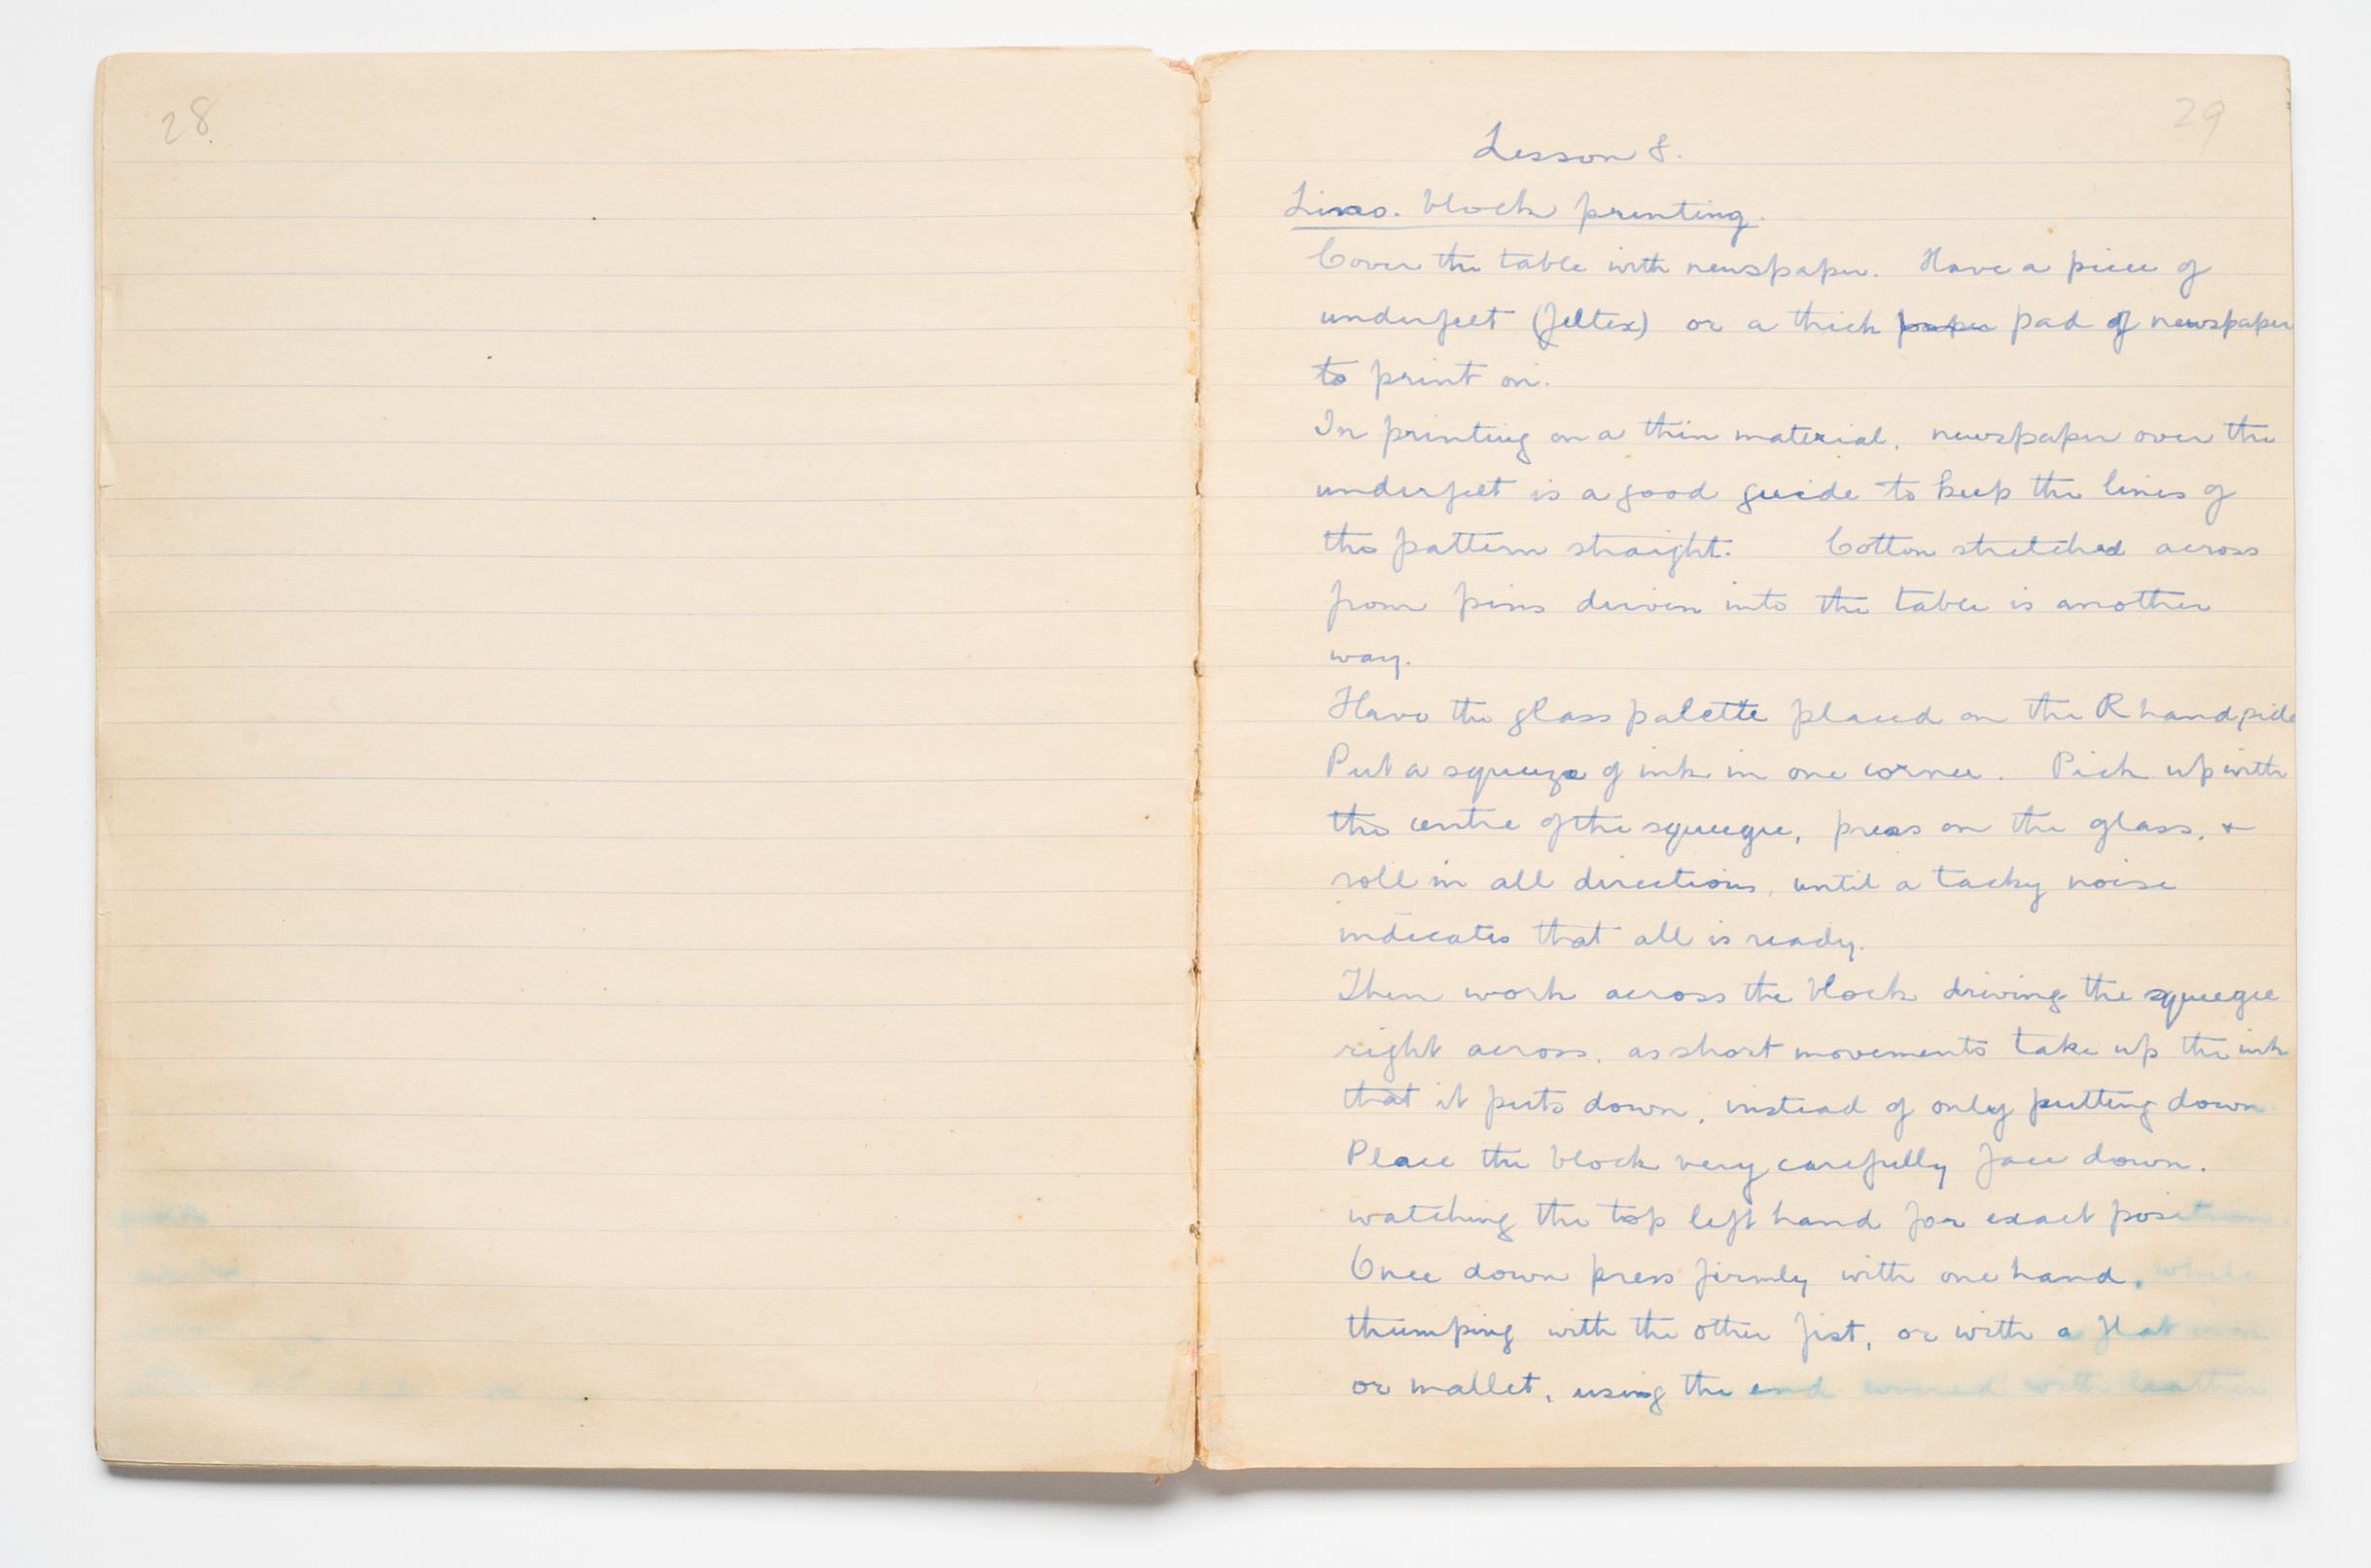 28
29
Lesson 8.
Lino. block printing.
Cover the table with newspaper. Have a piece of
underfelt (feltex) or a thick paper pad of newspaper
to print on.
In printing on a thin material, newspaper over the
underfelt is a good guide to keep the lines of
the pattern straight. Cotton stretched across
from pins driven into the table is another
way.
Have the glass palette placed on the R hand side
Put a squeeze of ink in one corner. Pick up with
the centre of the squeegee, press on the glass, +
roll in all directions, until a tacky noise
indicates that all is ready.
Then work across the block driving the squeegee
right across, as short movements take up the ink
that it puts down, instead of only putting down
Place the block very carefully face down.
watching the top left hand for exact position
Once down press firmly with one hand, while
thumping with the other fist, or with a flat
or mallet, using the end covered with leather